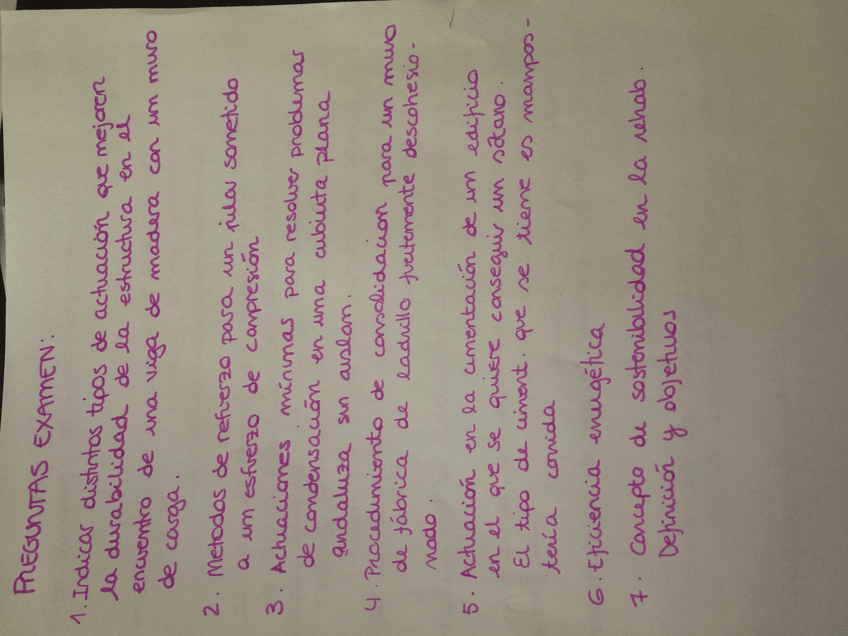 PREGUNTAS EXAMEN:
1. Indicar distintos tipos de actuación que mejoren
la durabilidad de la estructura en el
encuentro de una viga de madera con un muro
de carga.
2. Metodos de refuerzo para un pilar sometido
a un esfrezo de compresión
3. Actuaciones mínimas para resolver problemas
de condensación en una cubierta plana
andaluza sin aislam.
4. Procedimiento de consolidación para un muro
de fábrica de ladrillo fuertemente descohesio-
nado.
5. Actuación en la cimentación de un edificio
en el que se quiere conseguir un sótano.
El tipo de ciment. que se tiene es mampos-
tería corrida
6. Eficiencia energética
7. Concepto de sostenibilidad en la rehab.
Definición y objetivos